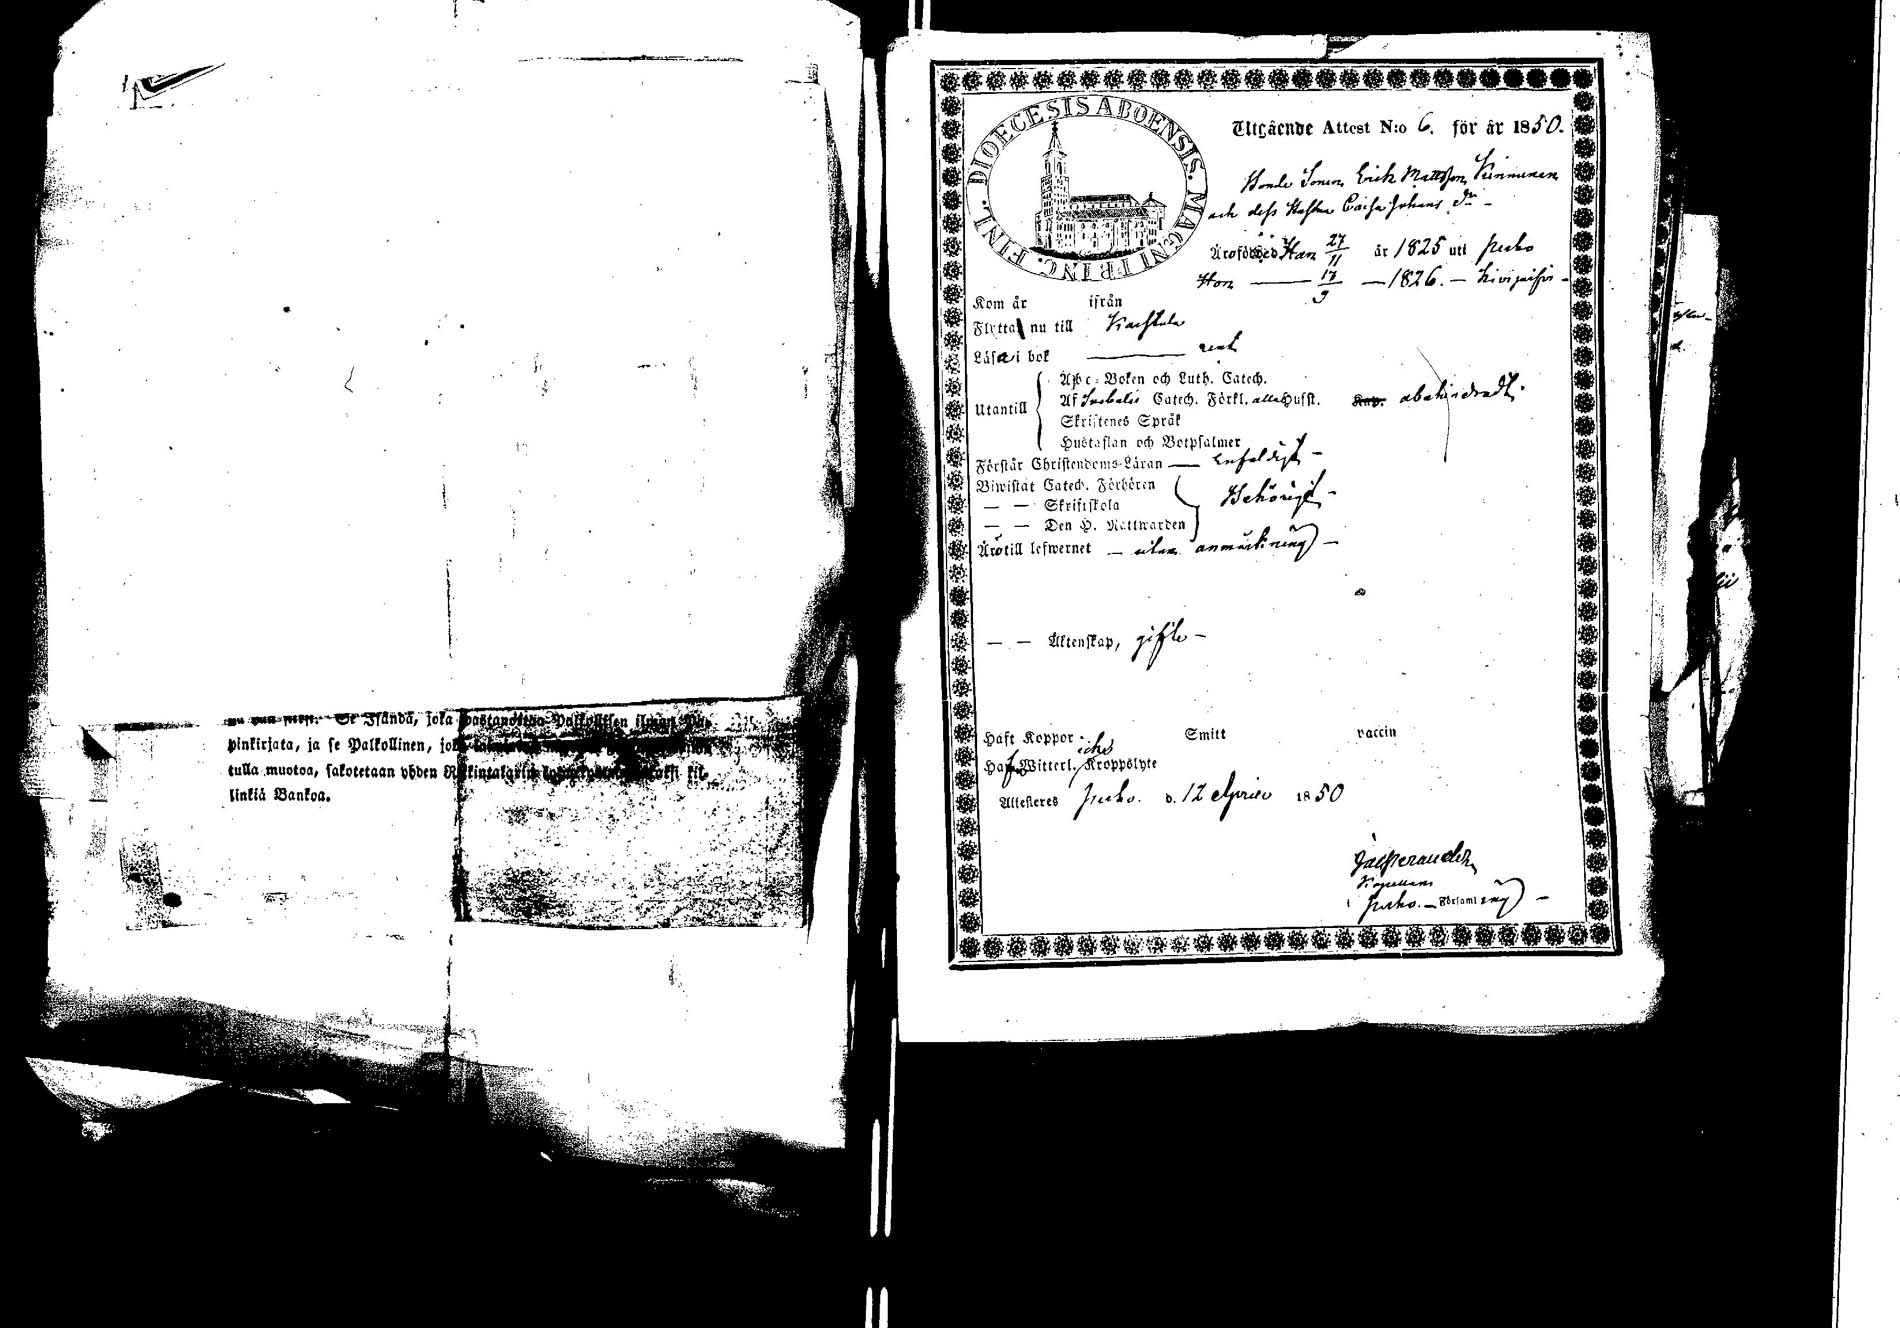 Se Isändä, joka wastanottaa Palkollisen ilman
pinkirjata, ja se Palkollinen,
tulla muotoa, sakotetaan yhden
linkiä Bankoa.
DIOECESIS ABOENSIS. MAGNI PRINC. FINL.
Utgående Attest N:o 6. för år 1850.
Bonde Sonen Erick Mattsson Kinnunen
och dess Hustru Caisa Johans dr -
Äro född Han 27/11 år 1825 uti Perho
Hon — 17/9 — 1826. —
Kom år ifrån
Flytta nu till
Läsa i bok — rent
Abc-Boken och Luth. Catech.
Utantill Af Svebelii Catech. Förkl. alla Hufst.
Skriftenes Språk
Hustaflan och Botpsalmer
Förstår Christendoms-Läran — enfaldigt -
Biwistat Catech. Förhören
— — Skriftskola Behörigt -
— — Den H. Nattwarden
Äro till lefwernet — utan anmärkning —
— — Äktenskap, gifte -
Haft Koppor Smitt vaccin
Witterl. Kroppslyte
Attesteres Perho. d. 12 April 1850
Kapellan
i Perho. — Församling —